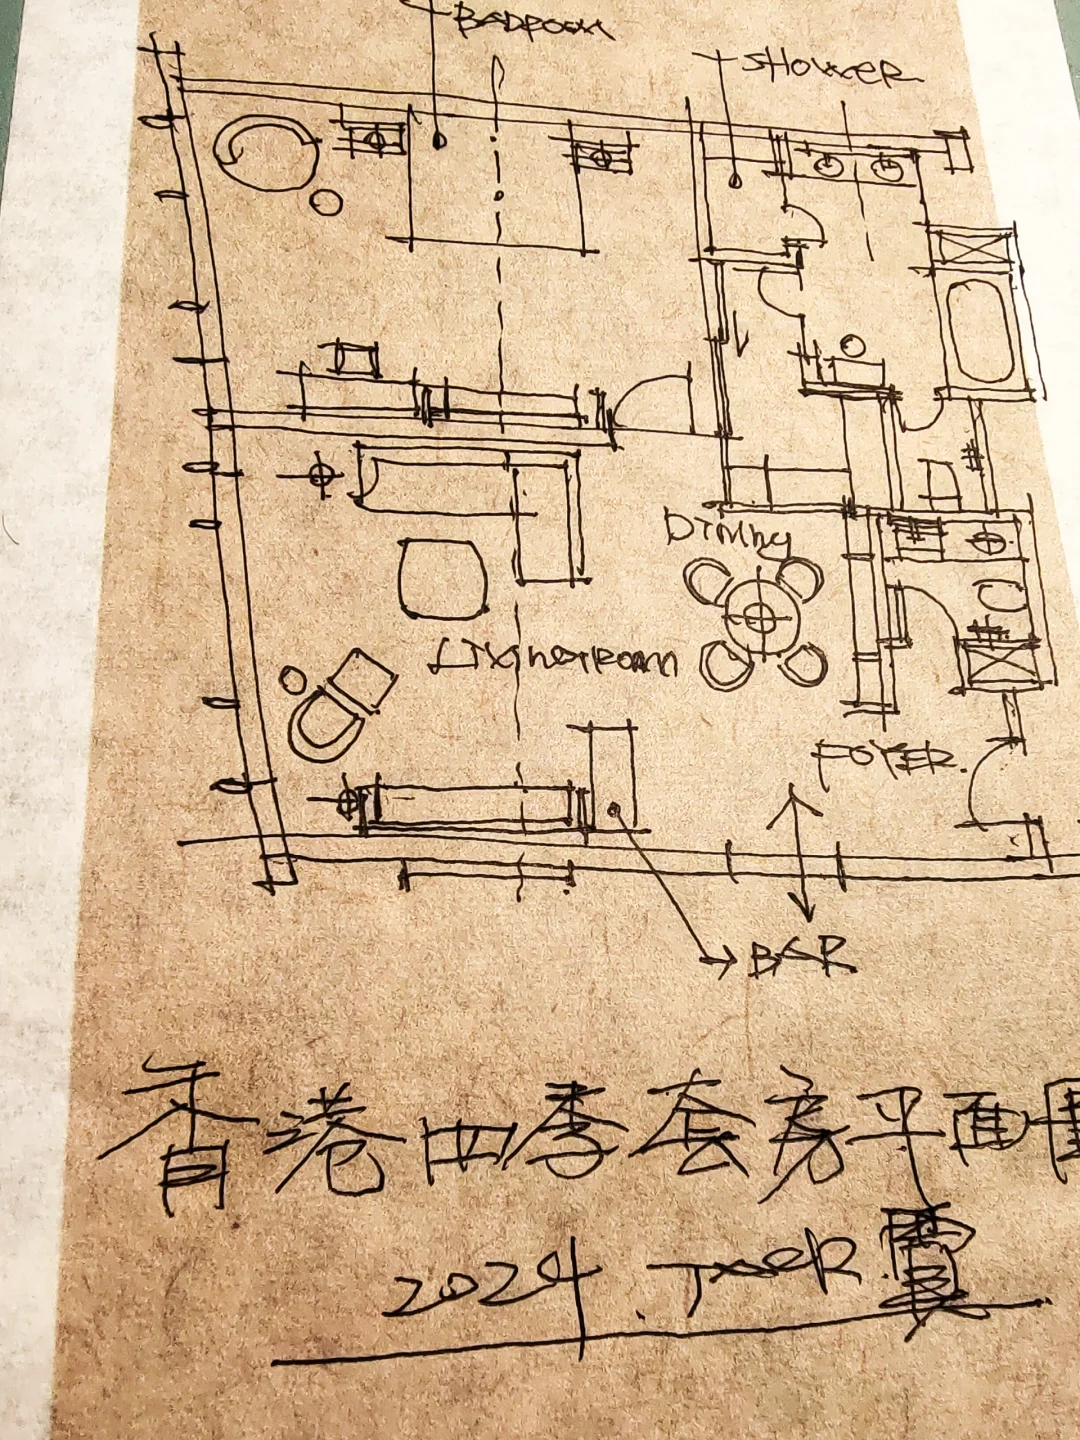 BADROOM
SHOWER
Dining
Livingroom
FOYER.
BAR
香港四季套房平面圖
2024.